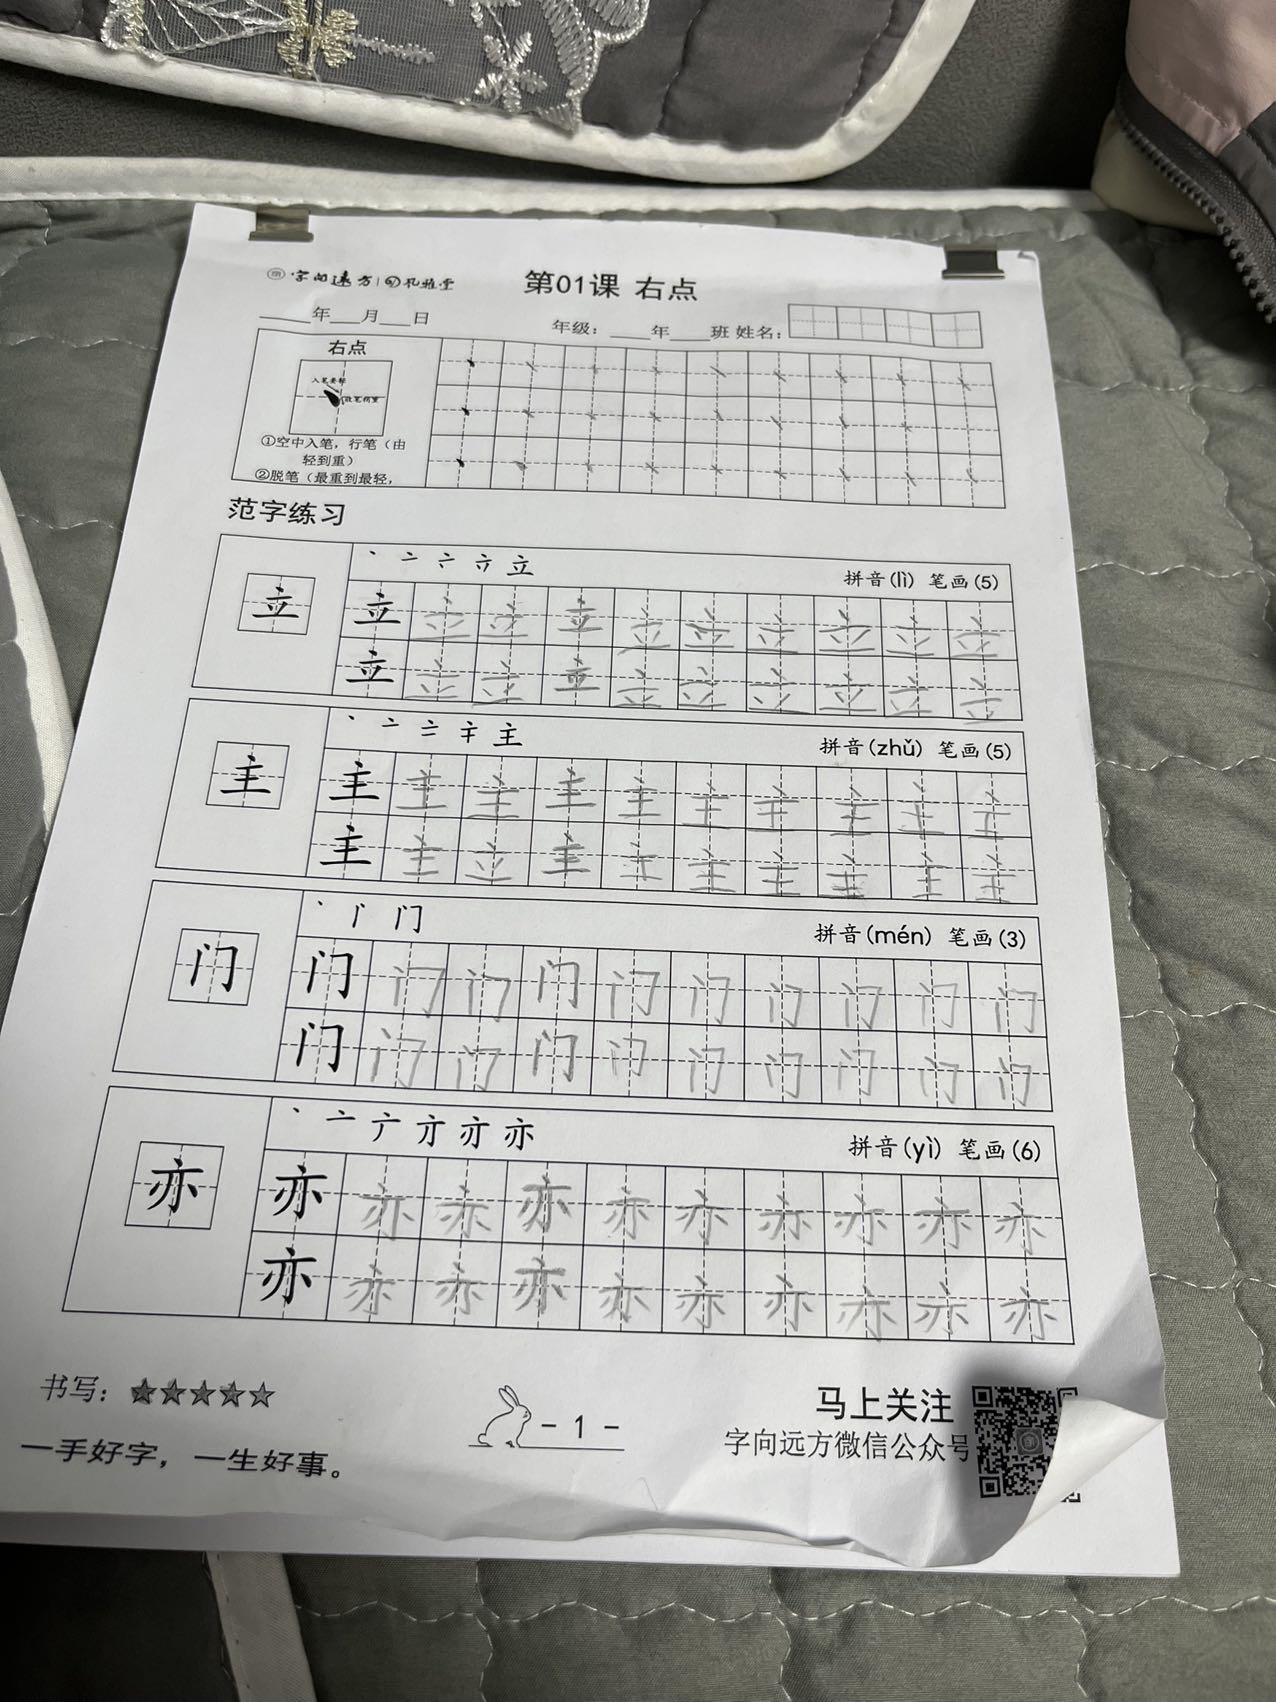 字向远方 孔雅堂
第01课 右点
____年___月___日 年级：____年____班 姓名：
右点
入笔要轻
收笔稍重
①空中入笔，行笔（由
轻到重）
②脱笔（最重到最轻，
范字练习
丶 亠 立 拼音(lì) 笔画(5)
立 立 立 立 立 立 立 立 立 立 立
立 立 立 立 立 立 立 立 立 立
丶 亠 主 拼音(zhǔ) 笔画(5)
主 主 主 主 主 主 主 主 主 主 主
主 主 立 主 主 主 主 主 主 主
丶 门 拼音(mén) 笔画(3)
门 门 门 门 门 门 门 门 门 门 门
门 门 门 门 门 门 门 门 门 门
丶 亠 亦 拼音(yì) 笔画(6)
亦 亦 亦 亦 亦 亦 亦 亦 亦 亦 亦
亦 亦 亦 亦 亦 亦 亦 亦 亦 亦
书写：☆☆☆☆☆
一手好字，一生好事。
- 1 -
马上关注
字向远方微信公众号